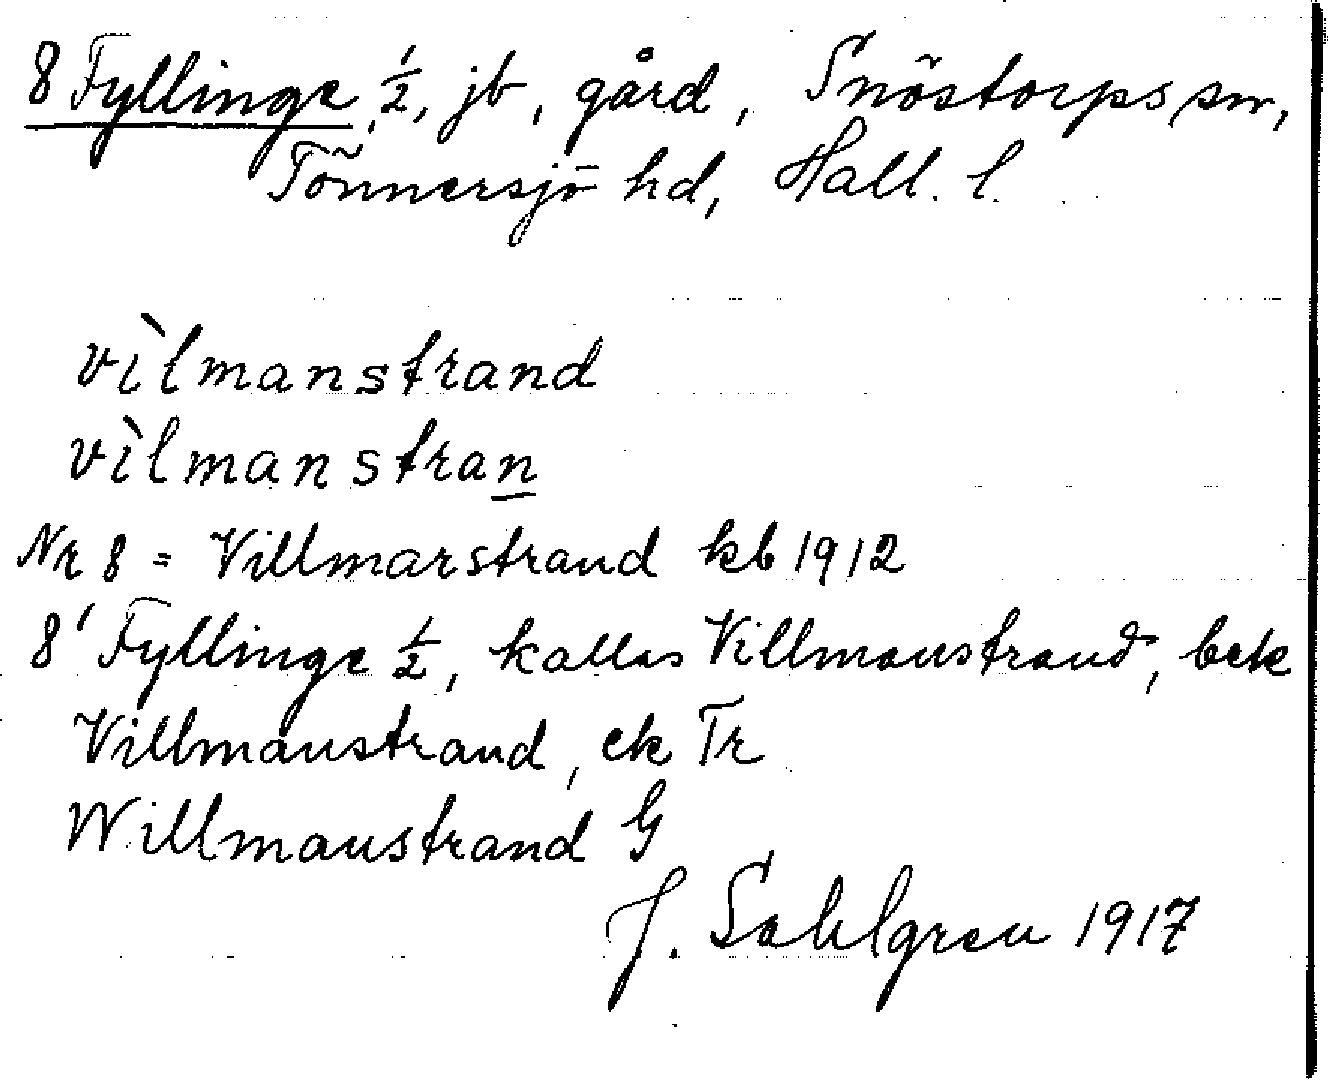 8 Fyllinge, ½, jb, gård, Snöstorps sn,
Tönnersjö hd, Hall. l.
vìlmanstrand
vìlmanstran
Nr 8 = Villmarstrand kb 1912
8' Fyllinge ½, kallas Villmanstrand, bek
Villmanstrand, ek Tr
Willmanstrand G
J. Sahlgren 1917